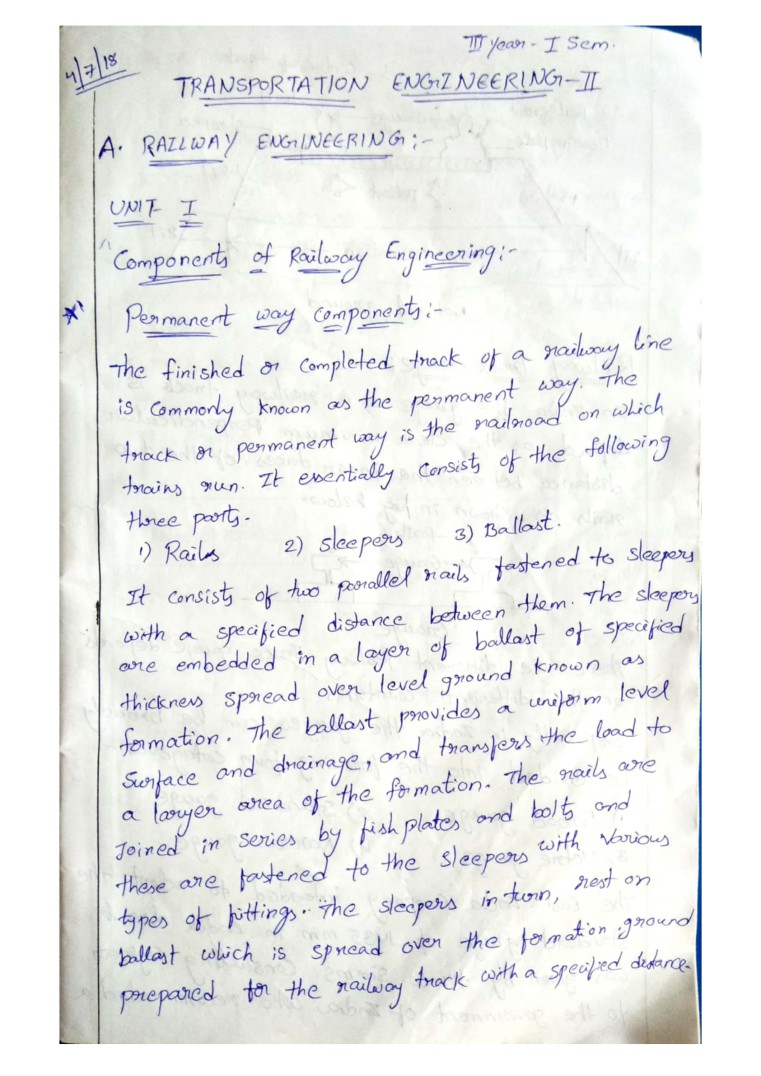 III year - I Sem.
4/7/18
TRANSPORTATION ENGINEERING-II
A. RAILWAY ENGINEERING:-
UNIT I
Components of Railway Engineering:-
Permanent way components:-
The finished or completed track of a railway line
is commonly known as the permanent way. The
track or permanent way is the railroad on which
trains run. It essentially consists of the following
three parts.
1) Rails 2) Sleepers 3) Ballast.
It consists of two parallel rails fastened to sleepers
with a specified distance between them. The sleepers
are embedded in a layer of ballast of specified
thickness spread over level ground known as
formation. The ballast provides a uniform level
surface and drainage, and transfers the load to
a larger area of the formation. The rails are
Joined in series by fish plates and bolts, and
these are fastened to the sleepers with various
types of fittings. The sleepers in turn, rest on
ballast which is spread over the formation ground
prepared for the railway track with a specified distance.